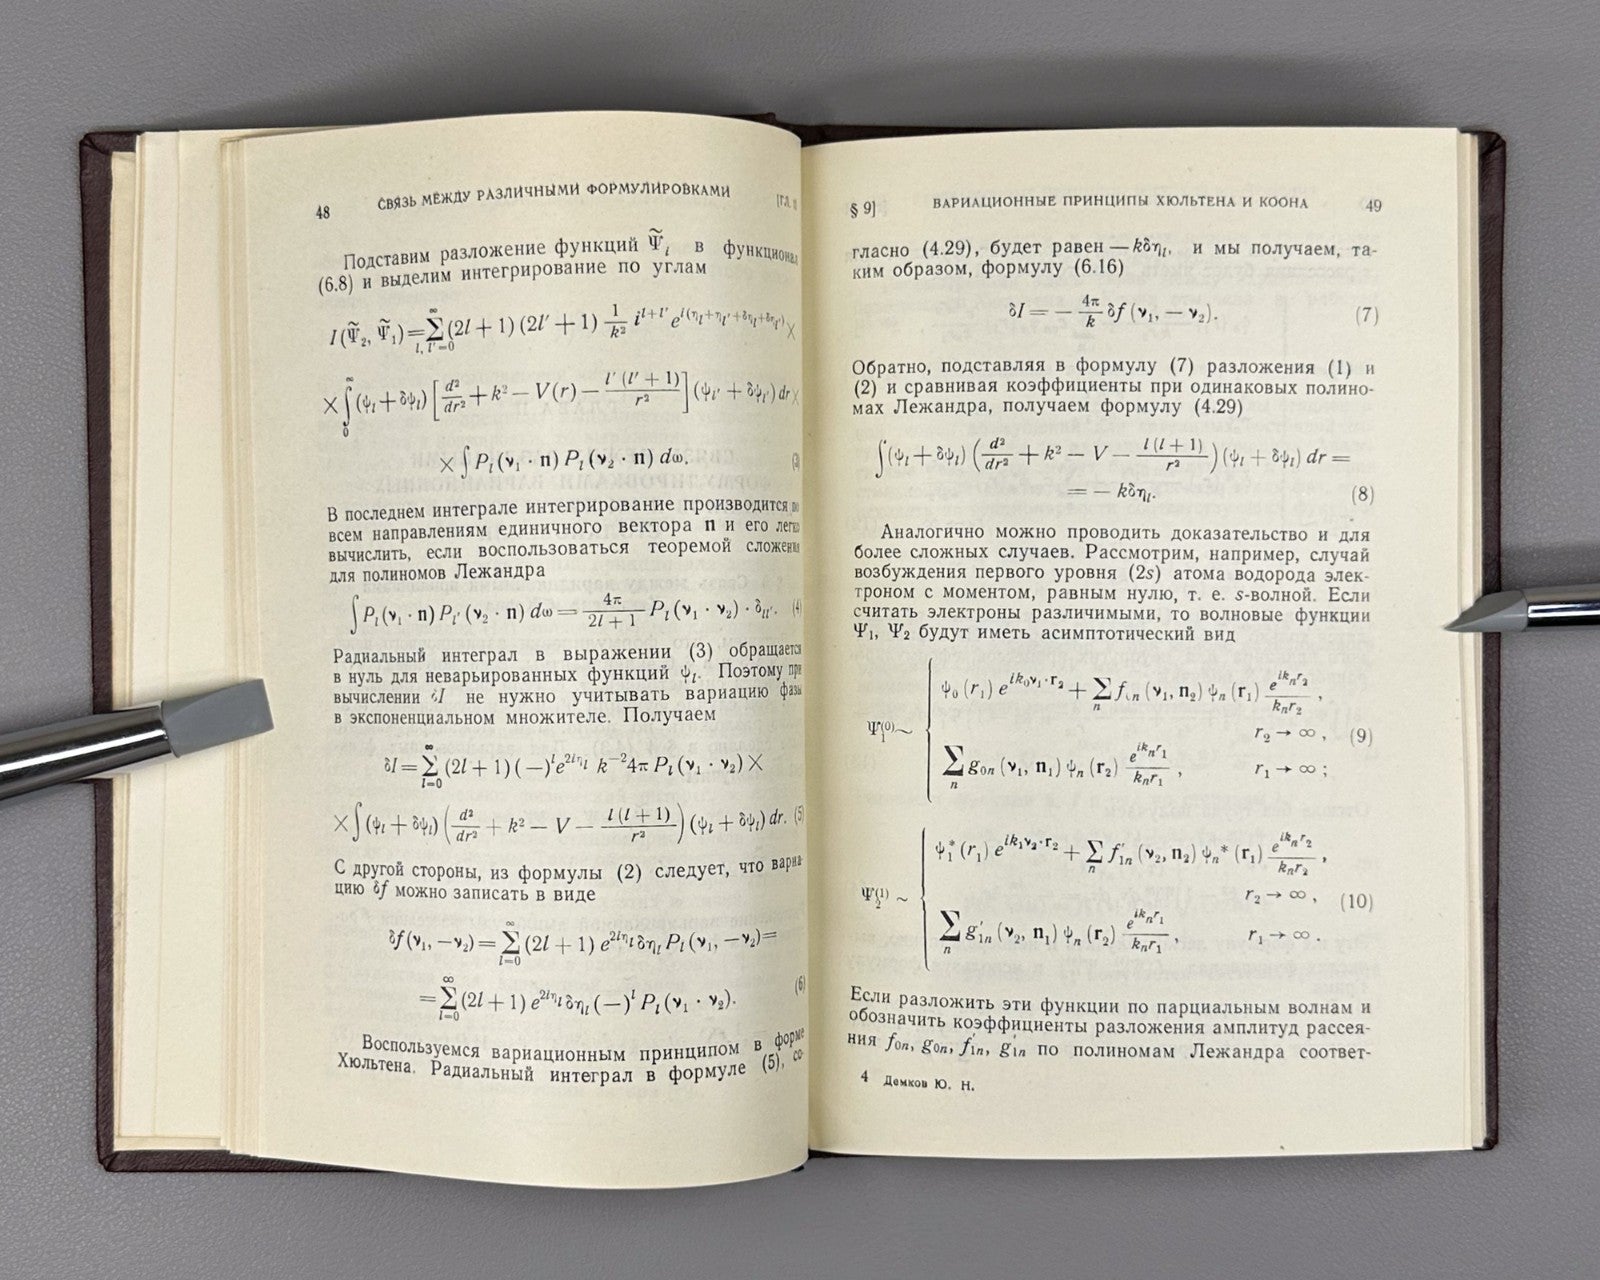 48 СВЯЗЬ МЕЖДУ РАЗЛИЧНЫМИ ФОРМУЛИРОВКАМИ [ГЛ.
Подставим разложение функций Ψ̃_l в функционал
(6.8) и выделим интегрирование по углам
I(Ψ̃₂, Ψ̃₁)=∑_{l, l'=0}^{∞}(2l+1)(2l'+1) 1/k² i^{l+l'} e^{i(η_l+η_{l'}+δη_l+δη_{l'})}×
×∫_0^∞(ψ_l+δψ_l)[d²/dr²+k²−V(r)−l'(l'+1)/r²](ψ_{l'}+δψ_{l'})dr×
×∫P_l(ν₁·n)P_l(ν₂·n)dω. (3)
В последнем интеграле интегрирование производится по
всем направлениям единичного вектора n и его легко
вычислить, если воспользоваться теоремой сложения
для полиномов Лежандра
∫P_l(ν₁·n)P_{l'}(ν₂·n)dω=4π/(2l+1) P_l(ν₁·ν₂)·δ_{ll'}. (4)
Радиальный интеграл в выражении (3) обращается
в нуль для неварьированных функций ψ_l. Поэтому при
вычислении δI не нужно учитывать вариацию фазы
в экспоненциальном множителе. Получаем
δI=∑_{l=0}^{∞}(2l+1)(−)^l e^{2iη_l} k^{−2}4πP_l(ν₁·ν₂)×
×∫(ψ_l+δψ_l)(d²/dr²+k²−V−l(l+1)/r²)(ψ_l+δψ_l)dr. (5)
С другой стороны, из формулы (2) следует, что вариа-
цию δf можно записать в виде
δf(ν₁,−ν₂)=∑_{l=0}^{∞}(2l+1)e^{2iη_l}δη_l P_l(ν₁,−ν₂)=
=∑_{l=0}^{∞}(2l+1)e^{2iη_l}δη_l(−)^l P_l(ν₁·ν₂). (6)
Воспользуемся вариационным принципом в форме
Хюльтена. Радиальный интеграл в формуле (5), со-
§ 9] ВАРИАЦИОННЫЕ ПРИНЦИПЫ ХЮЛЬТЕНА И КООНА 49
гласно (4.29), будет равен —kδη_l, и мы получаем, та-
ким образом, формулу (6.16)
δI=−4π/k δf(ν₁,−ν₂). (7)
Обратно, подставляя в формулу (7) разложения (1) и
(2) и сравнивая коэффициенты при одинаковых полино-
мах Лежандра, получаем формулу (4.29)
∫(ψ_l+δψ_l)(d²/dr²+k²−V−l(l+1)/r²)(ψ_l+δψ_l)dr=
=−kδη_l. (8)
Аналогично можно проводить доказательство и для
более сложных случаев. Рассмотрим, например, случай
возбуждения первого уровня (2s) атома водорода элек-
троном с моментом, равным нулю, т. е. s-волной. Если
считать электроны различимыми, то волновые функции
Ψ₁, Ψ₂ будут иметь асимптотический вид
ψ₀(r₁)e^{ik₀ν₁·r₂}+∑_n f_{0n}(ν₁,n₂)ψ_n(r₁) e^{ik_nr₂}/k_nr₂,
Ψ₁^{(0)}∼ r₂→∞, (9)
∑_n g_{0n}(ν₁, n₁)ψ_n(r₂) e^{ik_nr₁}/k_nr₁, r₁→∞;
ψ₁*(r₁)e^{ik₁ν₂·r₂}+∑_n f'_{1n}(ν₂,n₂)ψ_n*(r₁) e^{ik_nr₂}/k_nr₂,
Ψ₂^{(1)}∼ r₂→∞, (10)
∑_n g'_{1n}(ν₂, n₁)ψ_n(r₂) e^{ik_nr₁}/k_nr₁, r₁→∞.
Если разложить эти функции по парциальным волнам и
обозначить коэффициенты разложения амплитуд рассея-
ния f_{0n}, g_{0n}, f'_{1n}, g'_{1n} по полиномам Лежандра соответ-
4 Демков Ю. Н.